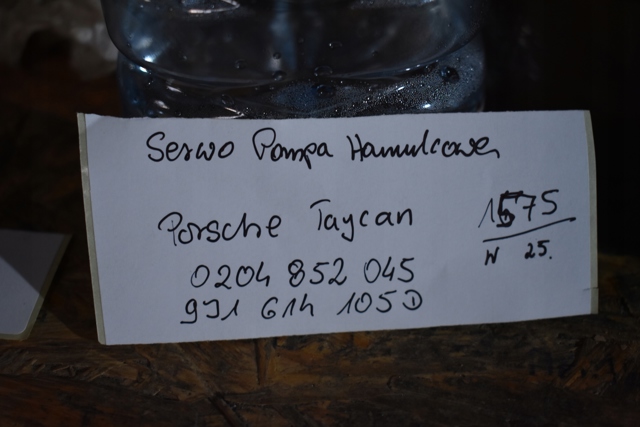 Serwo Pompa Hamulcowa
Porsche Taycan
0204 852 045
9J1 614 105D
1575
N 25.